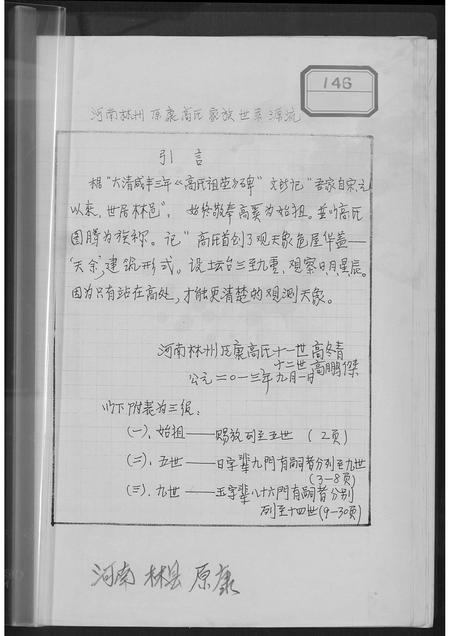 146
河南林州原康高氏家族世系源流
引 言
根“大清咸丰三年《高氏祖茔》碑”文所记“吾家自宋元
以来,世居林邑”。始终敬奉高奚为始祖。并以高氏
图腾为族称。记“高氏首创了观天象危屋华盖——
‘天余’建筑形式。设坛台三至九重,观察日月星辰。
因为只有站在高处,才能更清楚的观测天象。
河南林州 康高氏十一世高冬青
十二世高鹏傑
公元二〇一三年九月一日
以下附装为三纸:
(一)、始祖——赐放列至五世 (2页)
(二)、五世——日字辈九門有嗣者分列至九世
(3-8页)
(三)、九世——玉字辈八十六門有嗣者分别
列至十四世(9-30页)
河南 林县 原康